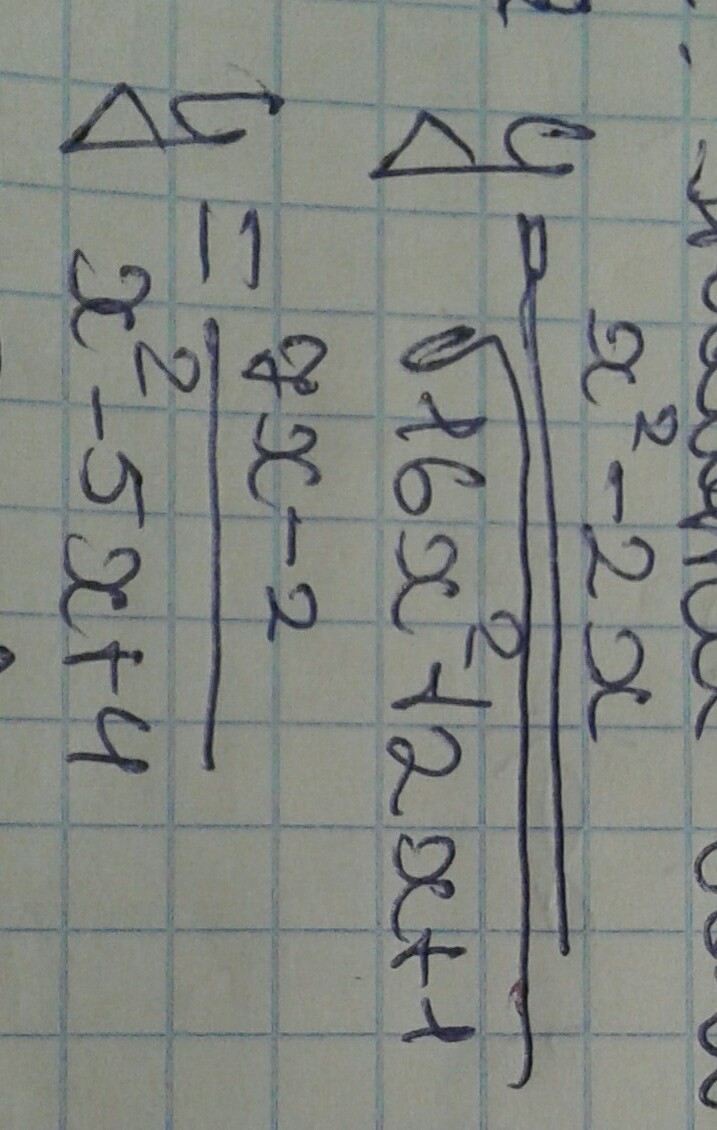 y = \frac{x^2-2x}{\sqrt{16x^2+2x+1}}
y = \frac{8x-2}{x^2-5x+4}